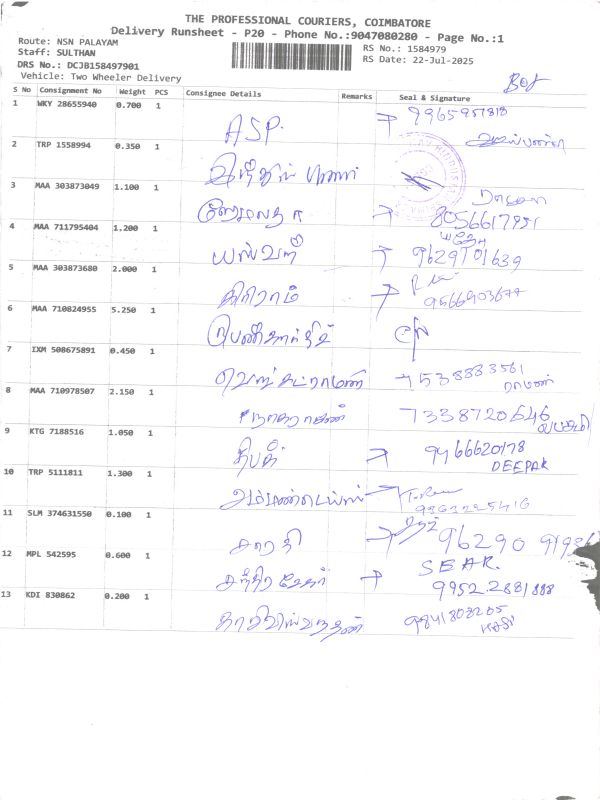 THE PROFESSIONAL COURIERS, COIMBATORE
Delivery Runsheet - P20 - Phone No.:9047080280 - Page No.:1
Route: NSN PALAYAM
RS No.: 1584979
Staff: SULTHAN
RS Date: 22-Jul-2025
DRS No.: DCJB158497901
Vehicle: Two Wheeler Delivery
S No Consignment No Weight PCS Consignee Details Remarks Seal & Signature
1 WKY 28655940 0.700 1 ASP.
2 TRP 1558994 0.350 1
3 MAA 303873049 1.100 1 ஹேமலதா 8056617951
4 MAA 711795404 1.200 1 9629701639
5 MAA 303873680 2.000 1 ஸ்ரீராம் 9566903677
6 MAA 710824955 5.250 1
7 IXM 508675891 0.450 1 வெங்கட்ரமணி 7538883561
ராமன்
8 MAA 710978507 2.150 1 நாகராஜன் 7338720646
லட்சுமி
9 KTG 7188516 1.050 1 தீபக் 9466620178
DEEPAK
10 TRP 5111811 1.300 1 9363225416
11 SLM 374631550 0.100 1 சாரதி 96290
12 MPL 542595 0.600 1 சந்திரசேகர் SEAR.
9952.2881888
13 KDI 830862 0.200 1 காசிவிஸ்வநாதன் 9841803205